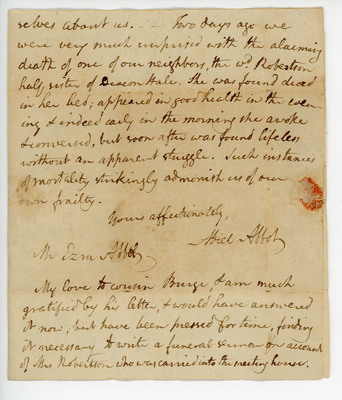 selves about us. — Two days ago we
were very much surprised with the alarming
death of one of our neighbors, the wd Robertson
half sister of Deacon Hale. She was found dead
in her bed; appeared in good health in the even-
ing & indeed early in the morning she awoke
& conversed, but soon after was found lifeless
without an apparent struggle. Such instances
of mortality strikingly admonish us of our
own frailty.
Yours affectionately,
Abiel Abbot
Mr Ezra Abbot
My love to cousin Burge, I am much
gratified by his letter, & would have answered
it now, but have been pressed for time, finding
it necessary to write a funeral sermon on account
of Mrs Robertson who was carried into the meeting house.